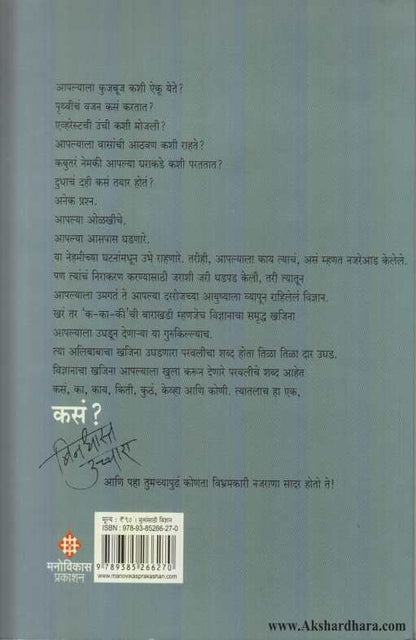 आपल्याला कुजबूज कशी ऐकू येते?
पृथ्वीचं वजन कसं करतात?
एव्हरेस्टची उंची कशी मोजली?
आपल्याला वासांची आठवण कशी राहते?
कबुतरं नेमकी आपल्या घराकडे कशी परततात?
दुधाचं दही कसं तयार होतं?
अनेक प्रश्न.
आपल्या ओळखीचे.
आपल्या आसपास घडणारे.
या नेहमीच्या घटनांमधून उभे राहणारे. तरीही, आपल्याला काय त्याचं, असं म्हणत नजरेआड केलेले.
पण त्यांचं निराकरण करण्यासाठी जराशी जरी धडपड केली, तरी त्यातून
आपल्याला उमगतं ते आपल्या दररोजच्या आयुष्याला व्यापून राहिलेलं विज्ञान.
खरं तर 'क-का-की'ची बाराखडी म्हणजेच विज्ञानाचा समृद्ध खजिना
आपल्याला उघडून देणाऱ्या या गुरुकिल्ल्याच.
त्या अलिबाबाचा खजिना उघडणारा परवलीचा शब्द होता तिळा तिळा दार उघड.
विज्ञानाचा खजिना आपल्याला खुला करून देणारे परवलीचे शब्द आहेत
कसं, का, काय, किती, कुठं, केव्हा आणि कोणी. त्यातलाच हा एक,
कसं ?
बिनधास्त
उच्चारा
आणि पहा तुमच्यापुढं कोणता विभ्रमकारी नजराणा सादर होतो ते!
मूल्य : ₹ ९० : मुलांसाठी विज्ञान
ISBN : 978-93-85266-27-0
9 789385 266270
www.manovikasprakashan.com
मनोविकास
प्रकाशन
www.Akshardhara.com